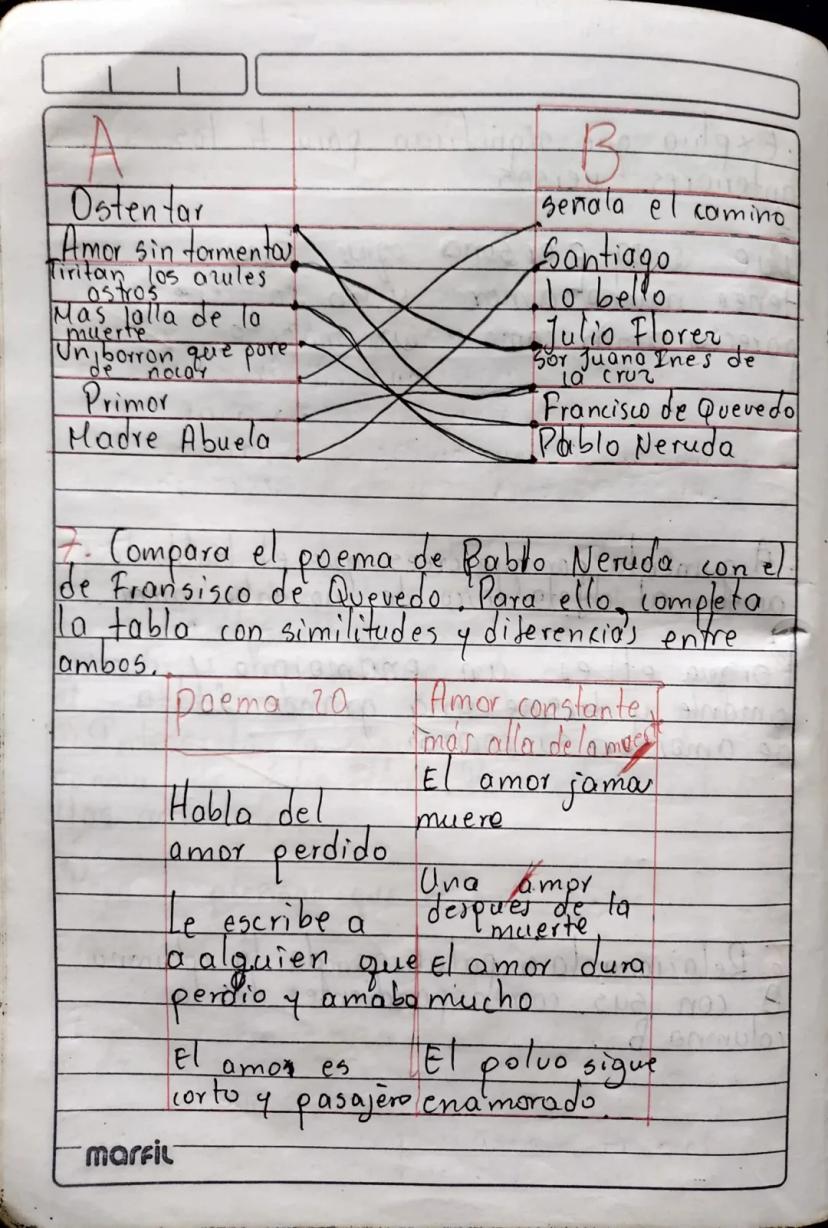 A
B
Ostentar
señala el camino
Amor sin tormenta
Santiago
Tiritan los azules
ostros
lo bello
Mas lalla de la
muerte
Julio Florez
Un borron que pore
de nocar
Sor Juana Ines de
la cruz
Primor
Francisco de Quevedo
Madre Abuela
Pablo Neruda
7. Compara el poema de Pablo Neruda con el
de Fransisco de Quevedo. Para ello, completa
la tabla con similitudes y diferencias entre
ambos.
Poema 20
Amor constante
más alla de la muert
Habla del
amor perdido
El amor jama
muere
Le escribe a
a alguien que
perdio y amaba
Una amor
despues de la
muerte
El amor dura
mucho
El amor es
corto y pasajero
El polvo sigue
enamorado.
marfil